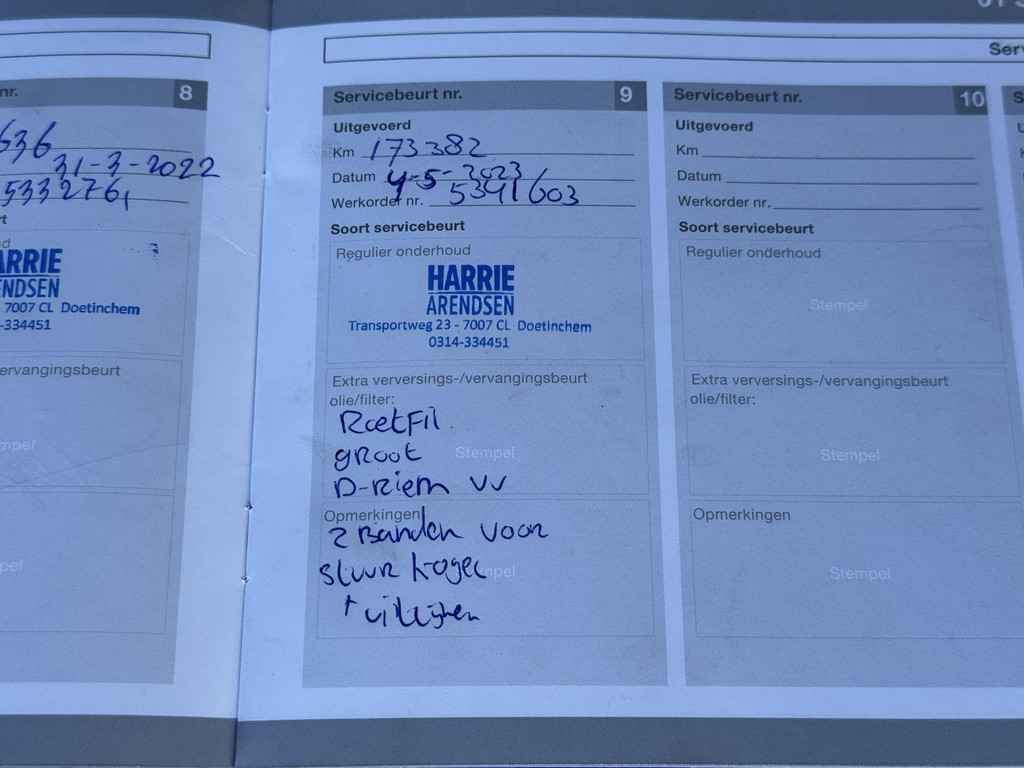 nr. 8
636
31-3-2022
5332761
ARRIE
NDSEN
7007 CL Doetinchem
-334451
ervangingsbeurt
Servicebeurt nr. 9
Uitgevoerd
Km 173382
Datum 4-5-2023
Werkorder nr. 5341603
Soort servicebeurt
Regulier onderhoud
HARRIE
ARENDSEN
Transportweg 23 - 7007 CL Doetinchem
0314-334451
Extra verversings-/vervangingsbeurt
olie/filter:
RoetFil
gROOt
Stempel
D-Riem VV
Opmerkingen
2 Banden voor
stuur kogel
+ uitlijnen
Servicebeurt nr. 10
Uitgevoerd
Km
Datum
Werkorder nr.
Soort servicebeurt
Regulier onderhoud
Stempel
Extra verversings-/vervangingsbeurt
olie/filter:
Stempel
Opmerkingen
Stempel